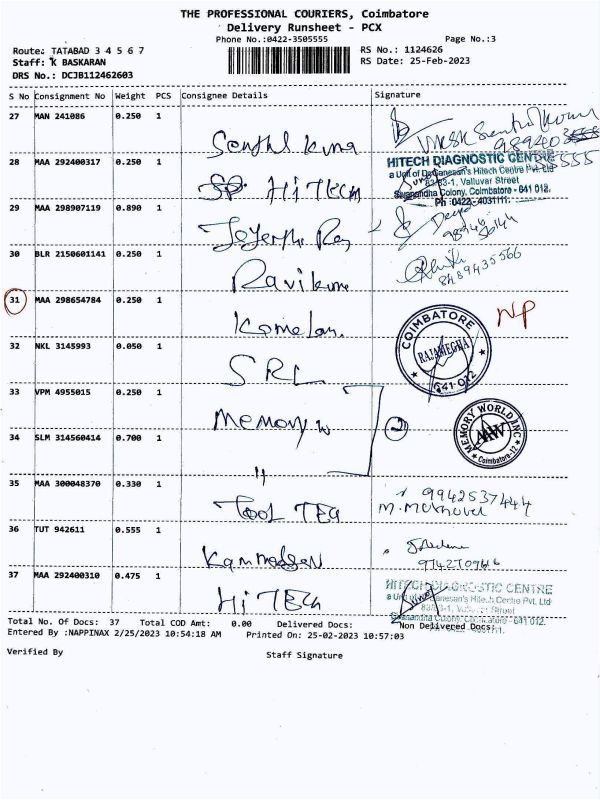 THE PROFESSIONAL COURIERS, Coimbatore
Delivery Runsheet - PCX
Phone No.:0422-3505555
Page No.:3
Route: TATABAD 3 4 5 6 7
RS No.: 1124626
Staff: K BASKARAN
RS Date: 25-Feb-2023
DRS No.: DCJB112462603
S No Consignment No Weight PCS Consignee Details Signature
27 MAN 241086 0.250 1
28 MAA 292400317 0.250 1 HiTECH
HITECH DIAGNOSTIC CENTRE
a Unit of Dr.Ganesan's Hitech Centre Pvt Ltd
83/83-1, Valluvar Street
Sivananda Colony, Coimbatore - 641 012.
Ph :0422-4031111.
29 MAA 298907119 0.890 1
30 BLR 2150601141 0.250 1 Ravikum
8489435566
31 MAA 298654784 0.250 1 NP
COIMBATORE
RAJAMEGHA
641-012
32 NKL 3145993 0.050 1 SRL
33 VPM 4955015 0.250 1 Memory w 2
MEMORY WORLD INC
Coimbatore-12
34 SLM 314560414 0.700 1 "
35 MAA 300048370 0.330 1 Tool TEC 9942537444
36 TUT 942611 0.555 1
37 MAA 292400310 0.475 1 HiTECH
HITECH DIAGNOSTIC CENTRE
a Unit of Dr.Ganesan's Hitech Centre Pvt. Ltd
83/83-1, Valluvar Street
Sivanandha Colony, Coimbatore - 641 012
Total No. Of Docs: 37 Total COD Amt: 0.00 Delivered Docs: Non Delivered Docs:
Entered By :NAPPINAX 2/25/2023 10:54:18 AM Printed On: 25-02-2023 10:57:03
Verified By
Staff Signature